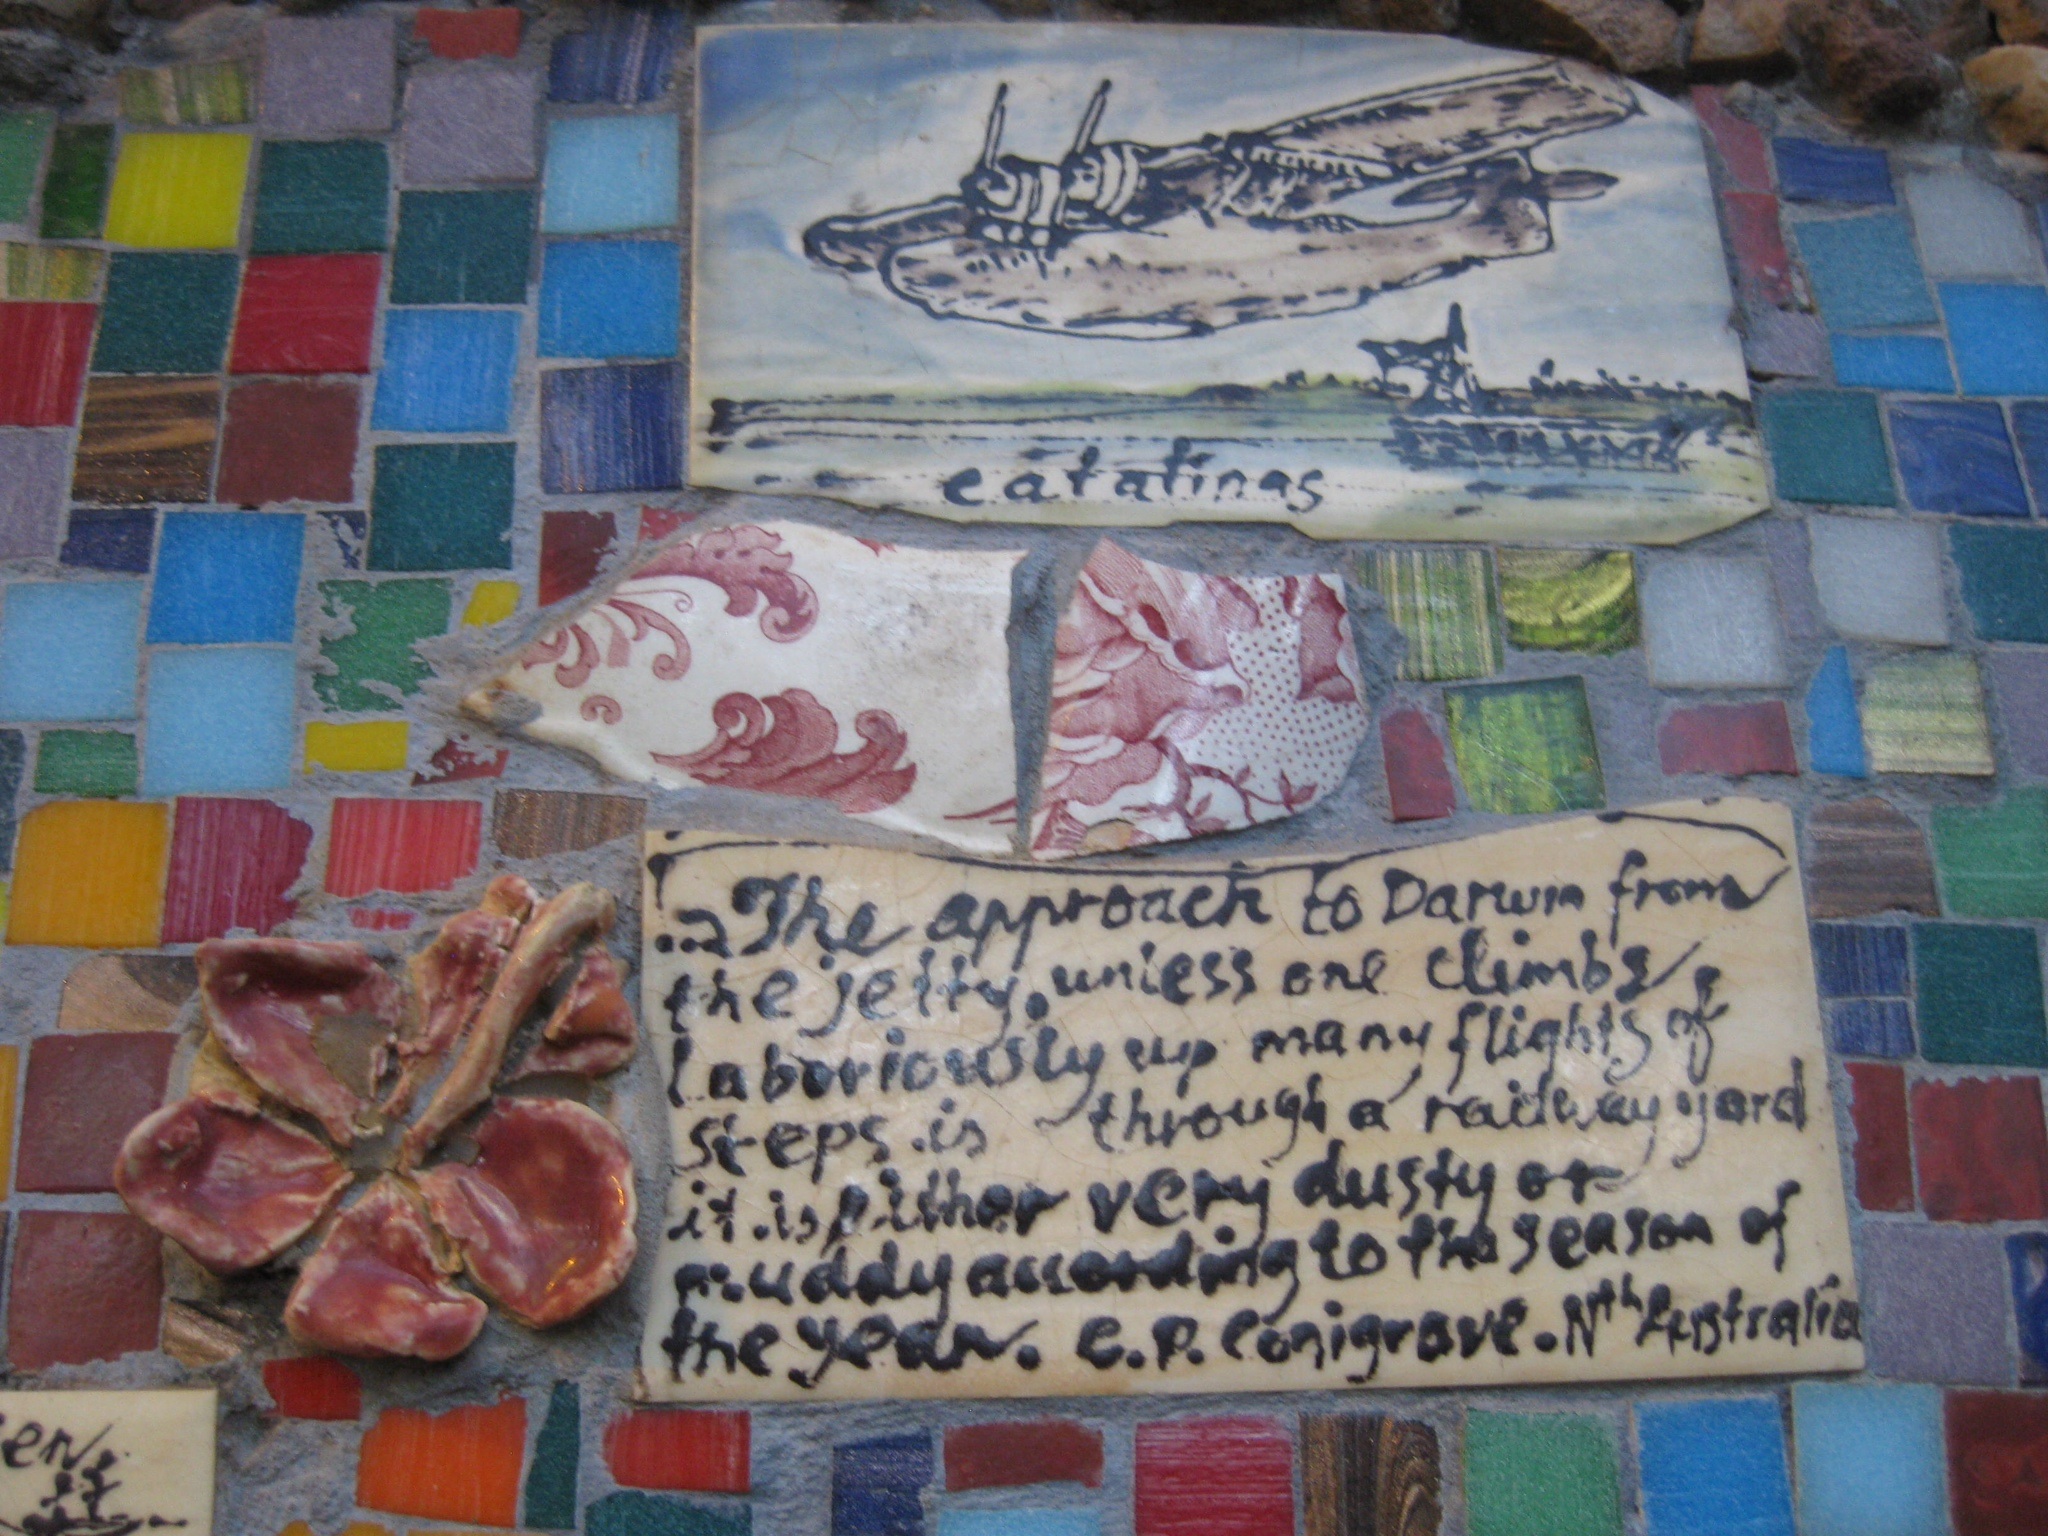 catalinas
...The approach to Darwin from
the jetty, unless one climbs
laboriously up many flights of
steps is through a railway yard
it is either very dusty or
muddy according to the season of
the year. C.P. Conigrave. Nth Australia